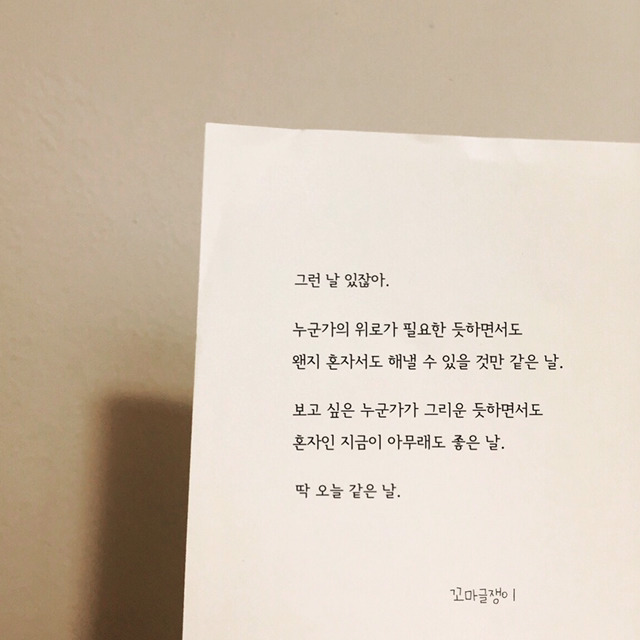 그런 날 있잖아.
누군가의 위로가 필요한 듯하면서도
왠지 혼자서도 해낼 수 있을 것만 같은 날.
보고 싶은 누군가가 그리운 듯하면서도
혼자인 지금이 아무래도 좋은 날.
딱 오늘 같은 날.
꼬마글쟁이